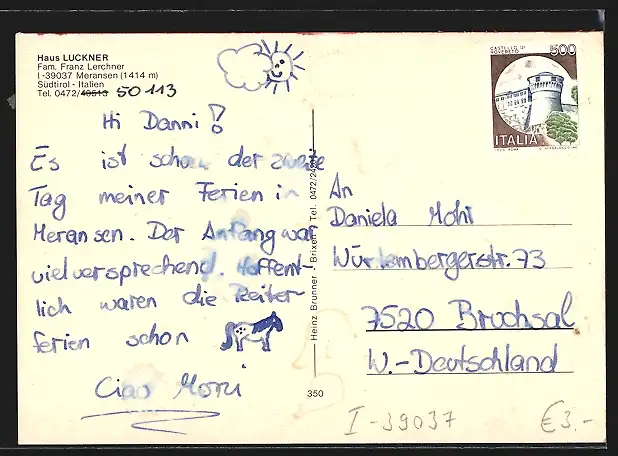 Haus LUCKNER
Fam. Franz Lerchner
I-39037 Meransen (1414 m)
Südtirol - Italien
Tel. 0472/40513 50 113
Hi Danni!
Es ist schon der zweite
Tag meiner Ferien in
Meransen. Der Anfang war
vielversprechend. Hoffent-
lich waren die Reiter-
ferien schon
Ciao
Heinz Brunner - Brixen - Tel. 0472/
350
CASTELLO DI
ROVERETO
500
ITALIA
An
Daniela Mohr
Würtembergerstr. 73
7520 Bruchsal
W.-Deutschland
I-39037
€3.-